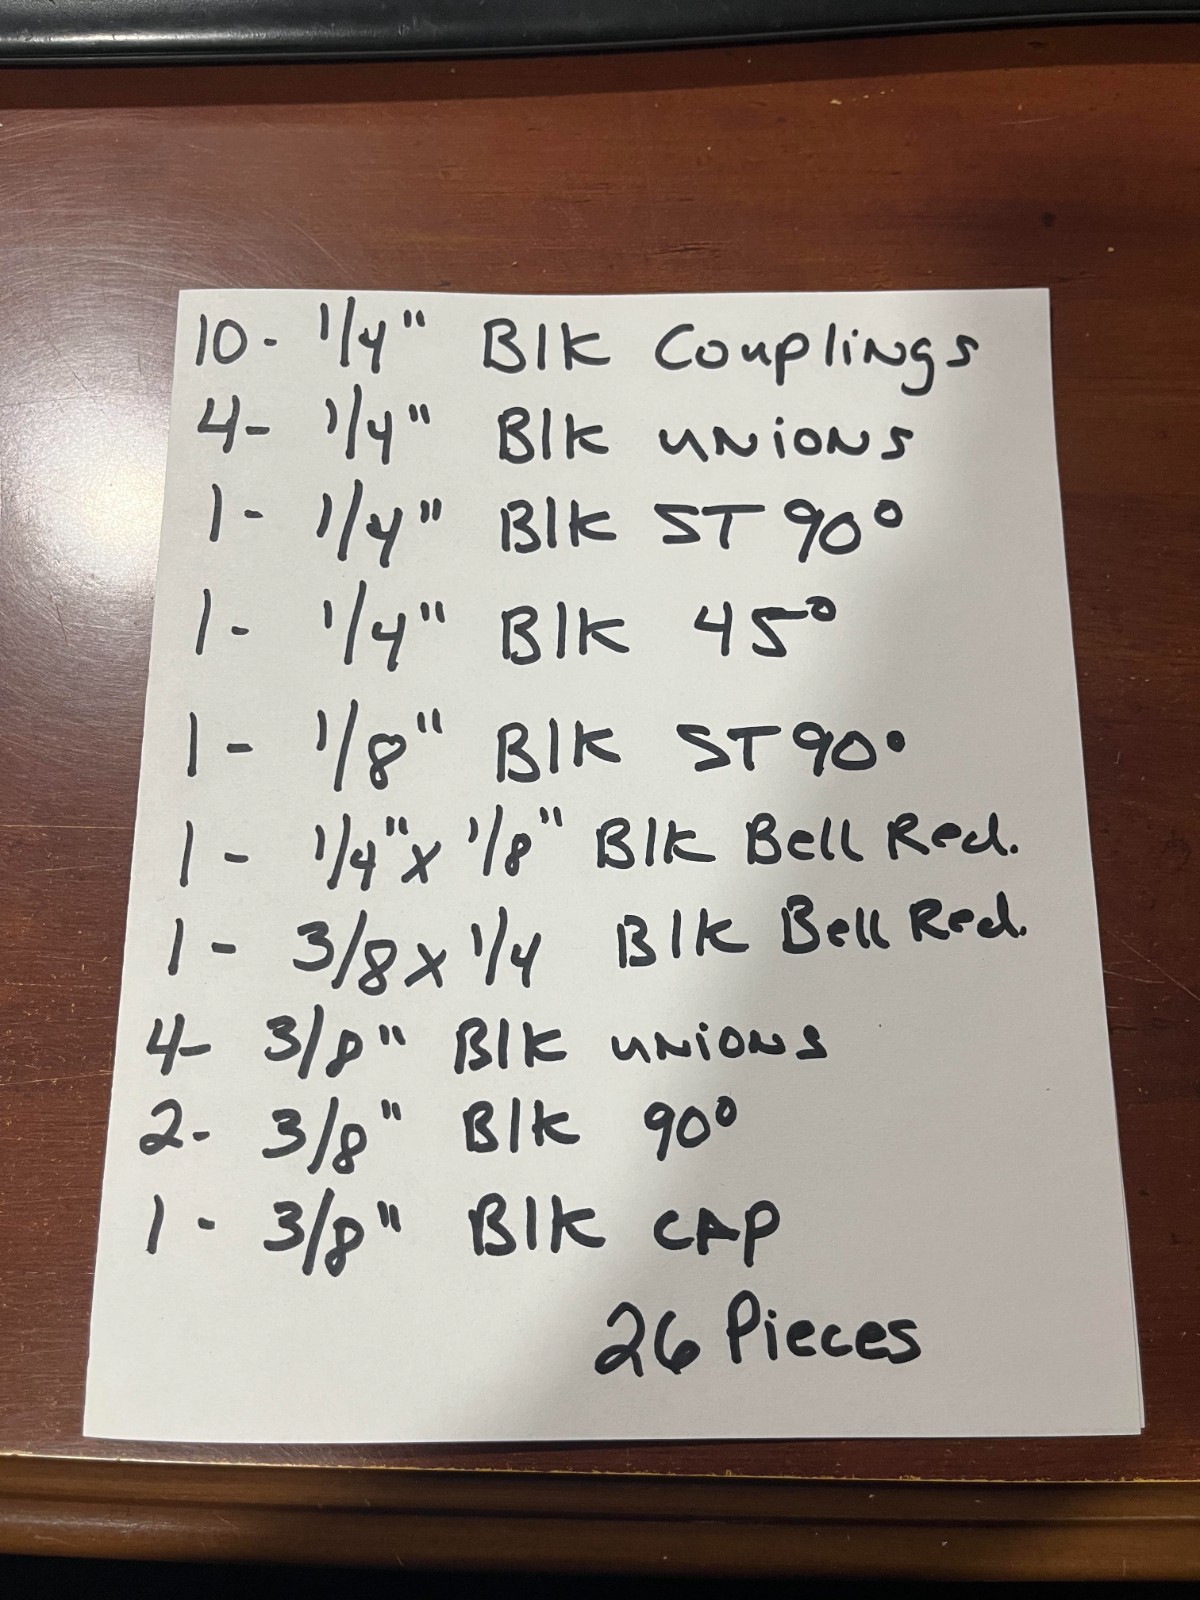 10- 1/4" Blk Couplings
4- 1/4" Blk unions
1- 1/4" Blk ST 90°
1- 1/4" Blk 45°
1- 1/8" Blk ST 90°
1- 1/4" x 1/8" Blk Bell Red.
1- 3/8 x 1/4 Blk Bell Red.
4- 3/8" Blk unions
2- 3/8" Blk 90°
1- 3/8" Blk CAP
26 Pieces